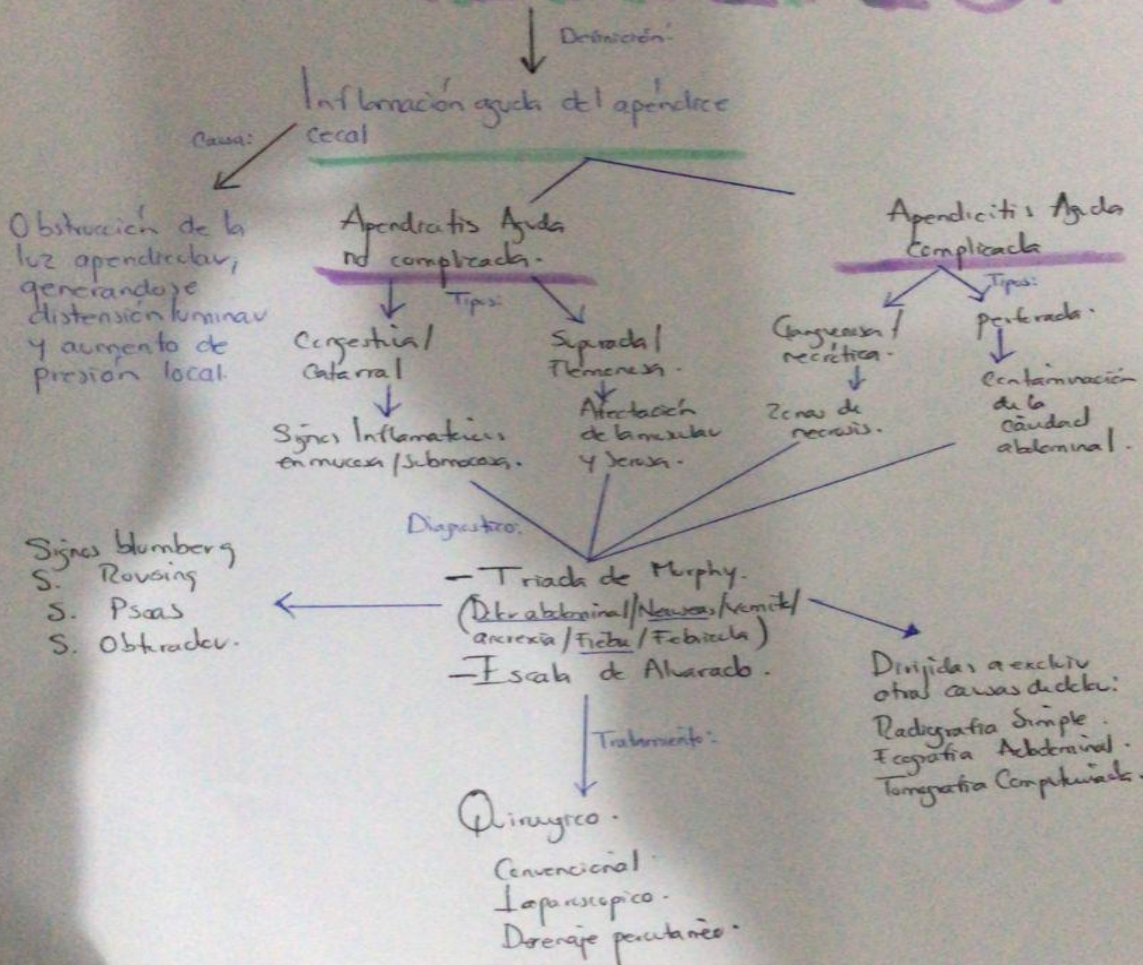 Definición:
Inflamación aguda del apéndice
cecal
Causa:
Obstrucción de la
luz apendicular,
generandose
distensión luminar
y aumento de
presión local.
Apendicitis Aguda
no complicada.
Tipos:
Congestiva/
Catarral
Signos Inflamatorios
en mucosa/submucosa.
Supurada/
Flemonosa.
Afectación
de la muscular
y serosa.
Apendicitis Aguda
Complicada
Tipos:
Gangrenosa/
necrótica.
Zonas de
necrosis.
Perforada.
Contaminación
de la
cavidad
abdominal.
Diagnostico:
- Triada de Murphy.
(Dolor abdominal/Nauseas/vomito/
anorexia/Fiebre/Febricula)
- Escala de Alvarado.
Signos blumberg
S. Rovsing
S. Psoas
S. Obturador.
Dirijidas a excluir
otras causas de dolor:
Radiografia Simple.
Ecografia Abdominal.
Tomografia Computarizada.
Tratamiento:
Qirurgico.
Convencional
Laparoscopico.
Drenaje percutaneo.